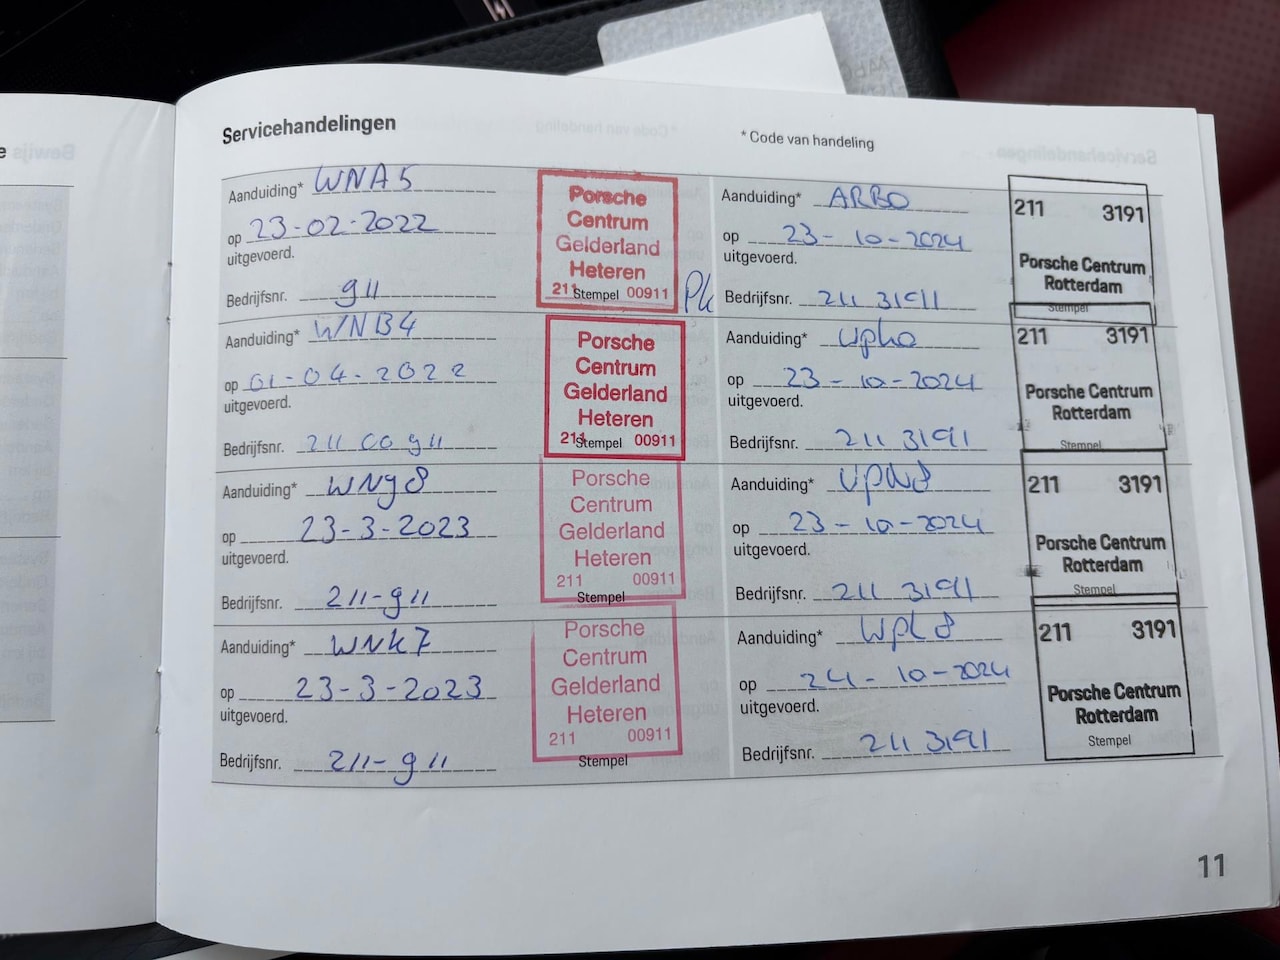 Servicehandelingen
* Code van handeling
Aanduiding* WNA5
op 23-02-2022
uitgevoerd.
Bedrijfsnr. 911
Porsche
Centrum
Gelderland
Heteren
211 Stempel 00911
Aanduiding* WNB4
op 01-04-2022
uitgevoerd.
Bedrijfsnr. 211 00911
Porsche
Centrum
Gelderland
Heteren
211 Stempel 00911
Aanduiding* WNY8
op 23-3-2023
uitgevoerd.
Bedrijfsnr. 211-911
Porsche
Centrum
Gelderland
Heteren
211 00911
Stempel
Aanduiding* WNK7
op 23-3-2023
uitgevoerd.
Bedrijfsnr. 211-911
Porsche
Centrum
Gelderland
Heteren
211 00911
Stempel
Aanduiding* ARB0
op 23-10-2024
uitgevoerd.
Bedrijfsnr. 211 3191
211 3191
Porsche Centrum
Rotterdam
Stempel
Aanduiding*
op 23-10-2024
uitgevoerd.
Bedrijfsnr. 211 3191
211 3191
Porsche Centrum
Rotterdam
Stempel
Aanduiding*
op 23-10-2024
uitgevoerd.
Bedrijfsnr. 211 3191
211 3191
Porsche Centrum
Rotterdam
Stempel
Aanduiding* WPL8
op 24-10-2024
uitgevoerd.
Bedrijfsnr. 211 3191
211 3191
Porsche Centrum
Rotterdam
Stempel
11